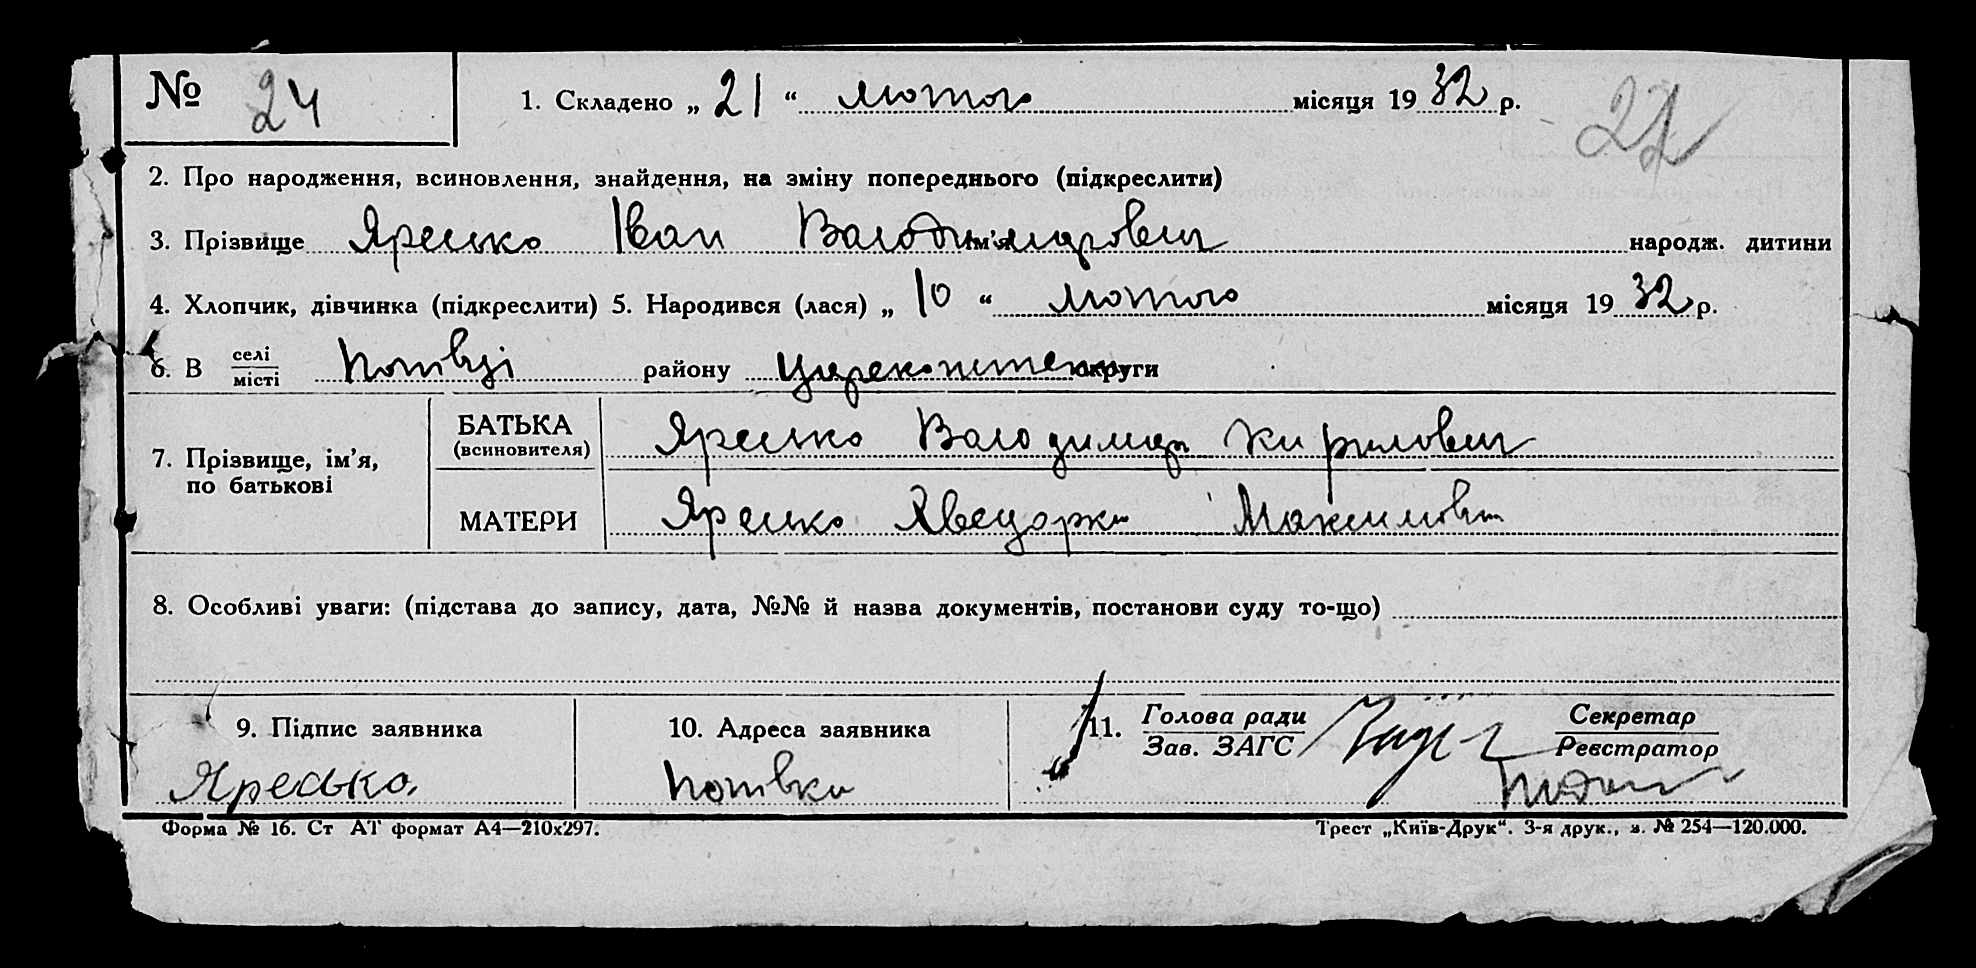 № 24
1. Складено „ 21 “ лютого місяця 1932 р.
2. Про народження, всиновлення, знайдення, на зміну попереднього (підкреслити)
3. Прізвище Яресько Іван Володимирович ім'я народж. дитини
4. Хлопчик, дівчинка (підкреслити) 5. Народився (лася) „ 10 “ лютого місяця 1932 р.
6. В селі місті Потівці району округи
7. Прізвище, ім'я, по батькові
БАТЬКА (всиновителя) Яресько Володимир Кирилович
МАТЕРИ Яресько Максимовна
8. Особливі уваги: (підстава до запису, дата, №№ й назва документів, постанови суду то-що)
9. Підпис заявника
10. Адреса заявника
11. Голова ради Зав. ЗАГС
Секретар Реєстратор
Яресько.
Потівка
Форма № 16. Ст АТ формат А4—210х297.
Трест „Київ-Друк“. 3-я друк., з. № 254—120.000.